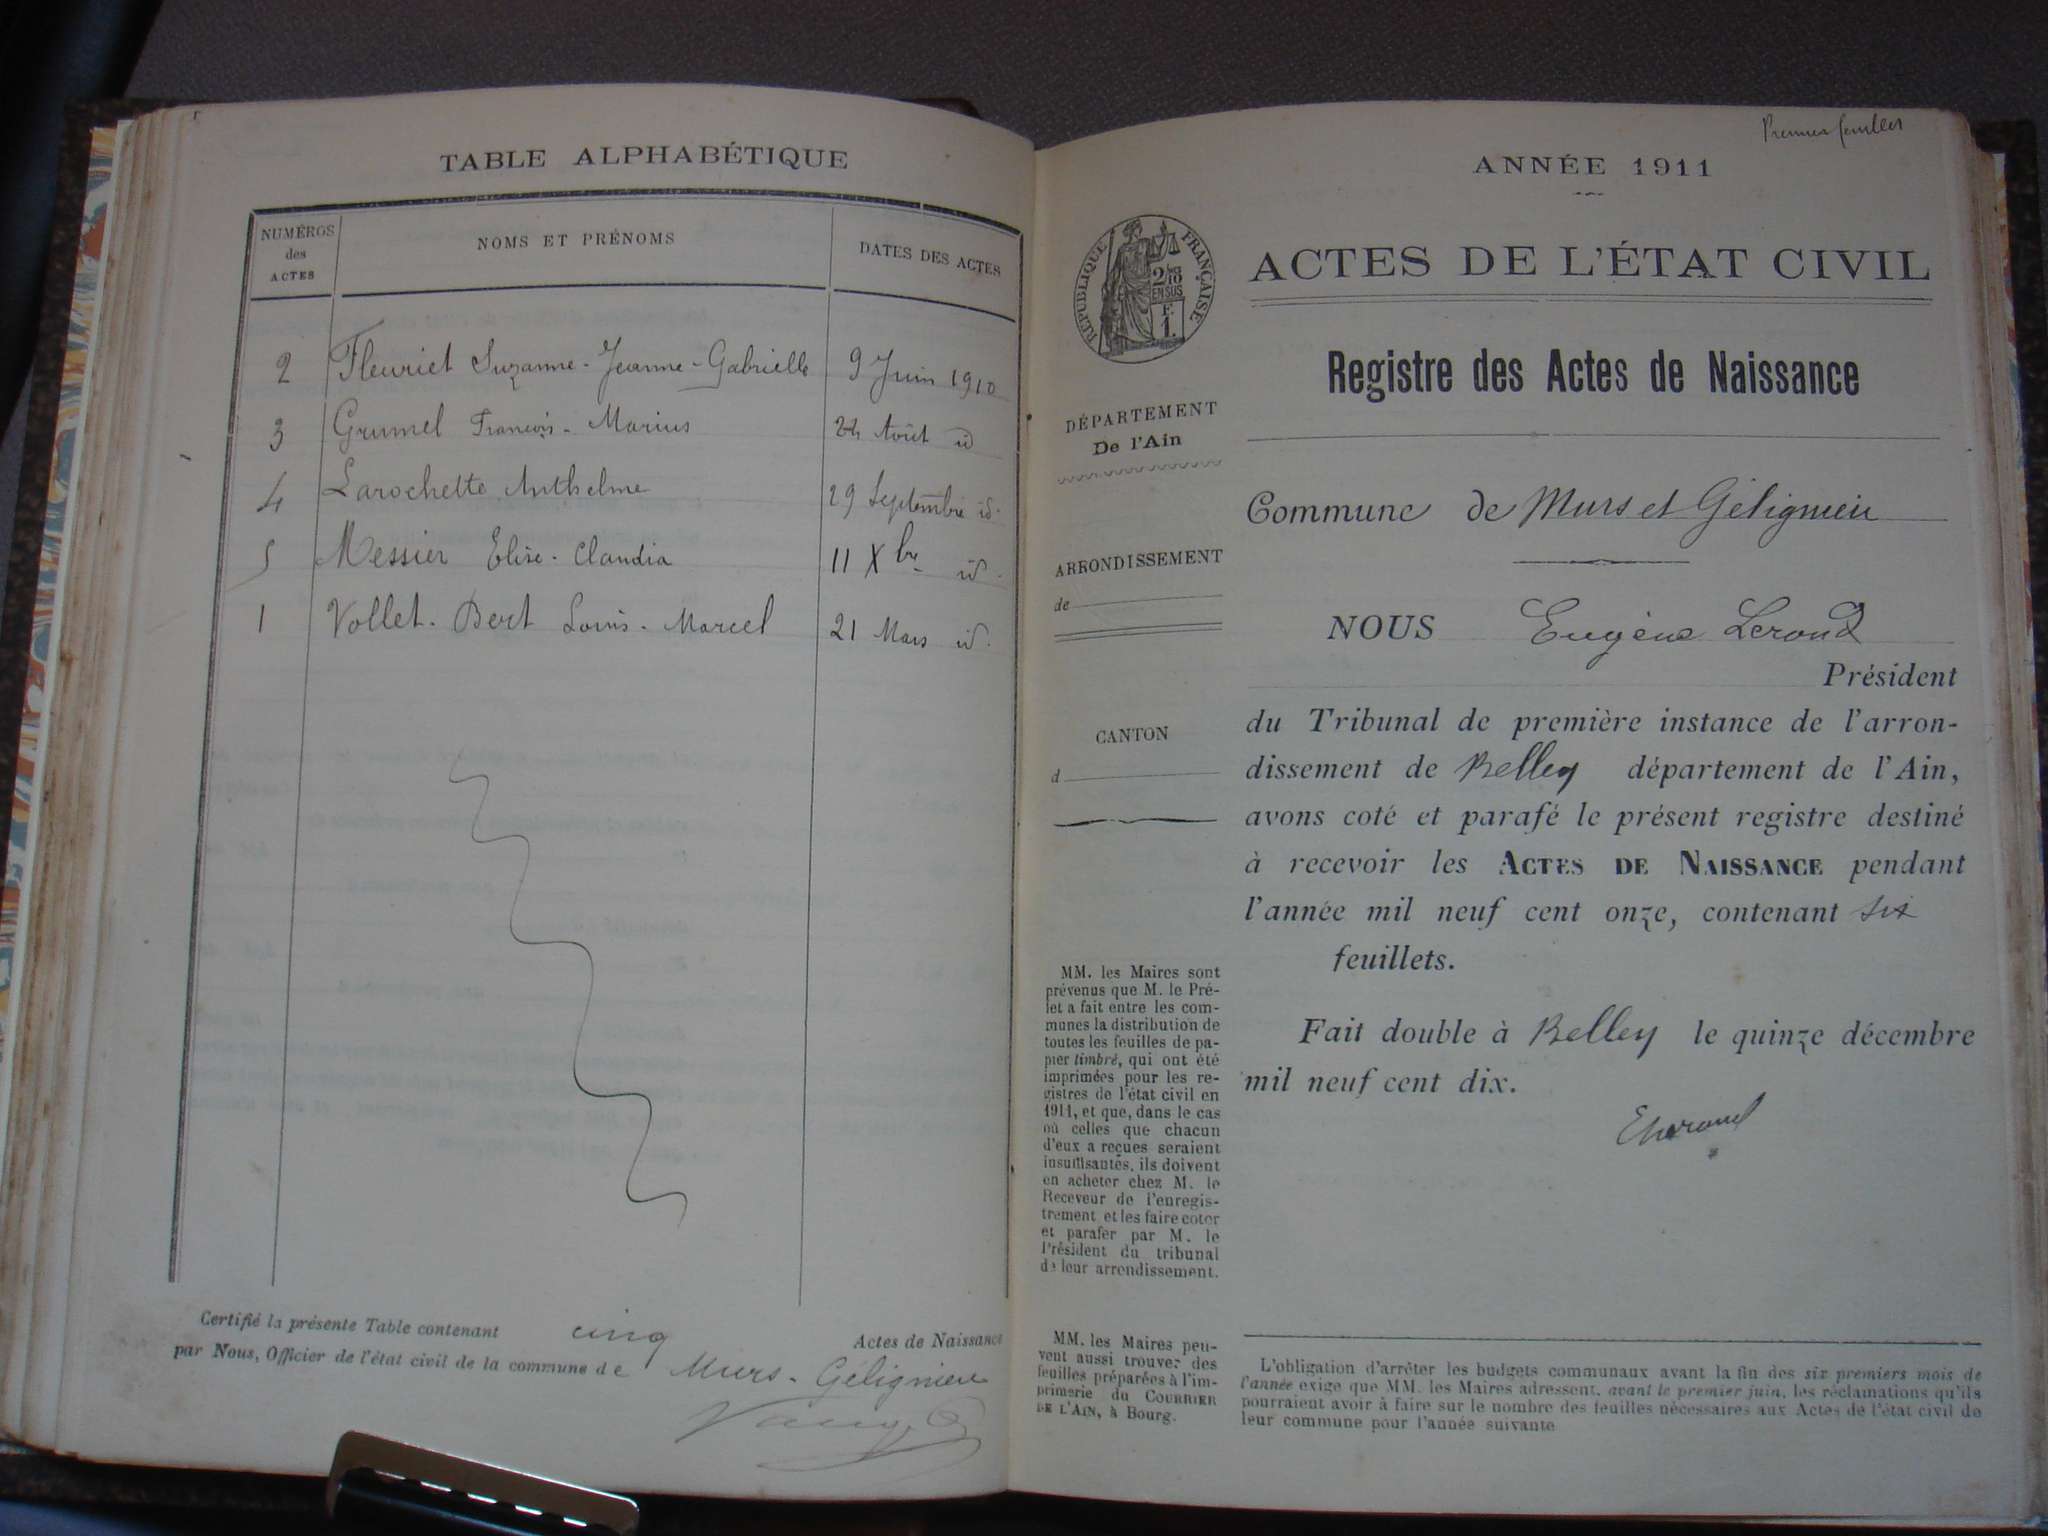 TABLE ALPHABÉTIQUE
NUMÉROS des ACTES
NOMS ET PRÉNOMS
DATES DES ACTES
2 Fleuriet Suzanne-Jeanne-Gabrielle 9 Juin 1910
3 Grumel François-Marius 24 Août id
4 Larochette Anthelme 29 Septembre id.
5 Messier Elise-Claudia 11 Xbre id.
1 Vollet-Bert Louis-Marcel 21 Mars id.
Certifié la présente Table contenant cinq Actes de Naissance
par Nous, Officier de l'état civil de la commune de Murs-Gélignieu
Premier feuillet
ANNÉE 1911
ACTES DE L'ÉTAT CIVIL
Registre des Actes de Naissance
RÉPUBLIQUE FRANÇAISE
2/10
EN SUS
F.
1.
DÉPARTEMENT
De l'Ain
ARRONDISSEMENT
de
CANTON
d
MM. les Maires sont
prévenus que M. le Pré-
fet a fait entre les com-
munes la distribution de
toutes les feuilles de pa-
pier timbré, qui ont été
imprimées pour les re-
gistres de l'état civil en
1911, et que, dans le cas
où celles que chacun
d'eux a reçues seraient
insuffisantes, ils doivent
en acheter chez M. le
Receveur de l'enregis-
trement et les faire coter
et parafer par M. le
Président du tribunal
de leur arrondissement.
MM. les Maires peu-
vent aussi trouver des
feuilles préparées à l'im-
primerie du COURRIER
DE L'AIN, à Bourg.
Commune de Murs et Gélignieu
NOUS Eugène Lerond
Président
du Tribunal de première instance de l'arron-
dissement de Belley département de l'Ain,
avons coté et parafé le présent registre destiné
à recevoir les ACTES DE NAISSANCE pendant
l'année mil neuf cent onze, contenant six
feuillets.
Fait double à Belley le quinze décembre
mil neuf cent dix.
L'obligation d'arrêter les budgets communaux avant la fin des six premiers mois de
l'année exige que MM. les Maires adressent, avant le premier juin, les réclamations qu'ils
pourraient avoir à faire sur le nombre des feuilles nécessaires aux Actes de l'état civil de
leur commune pour l'année suivante